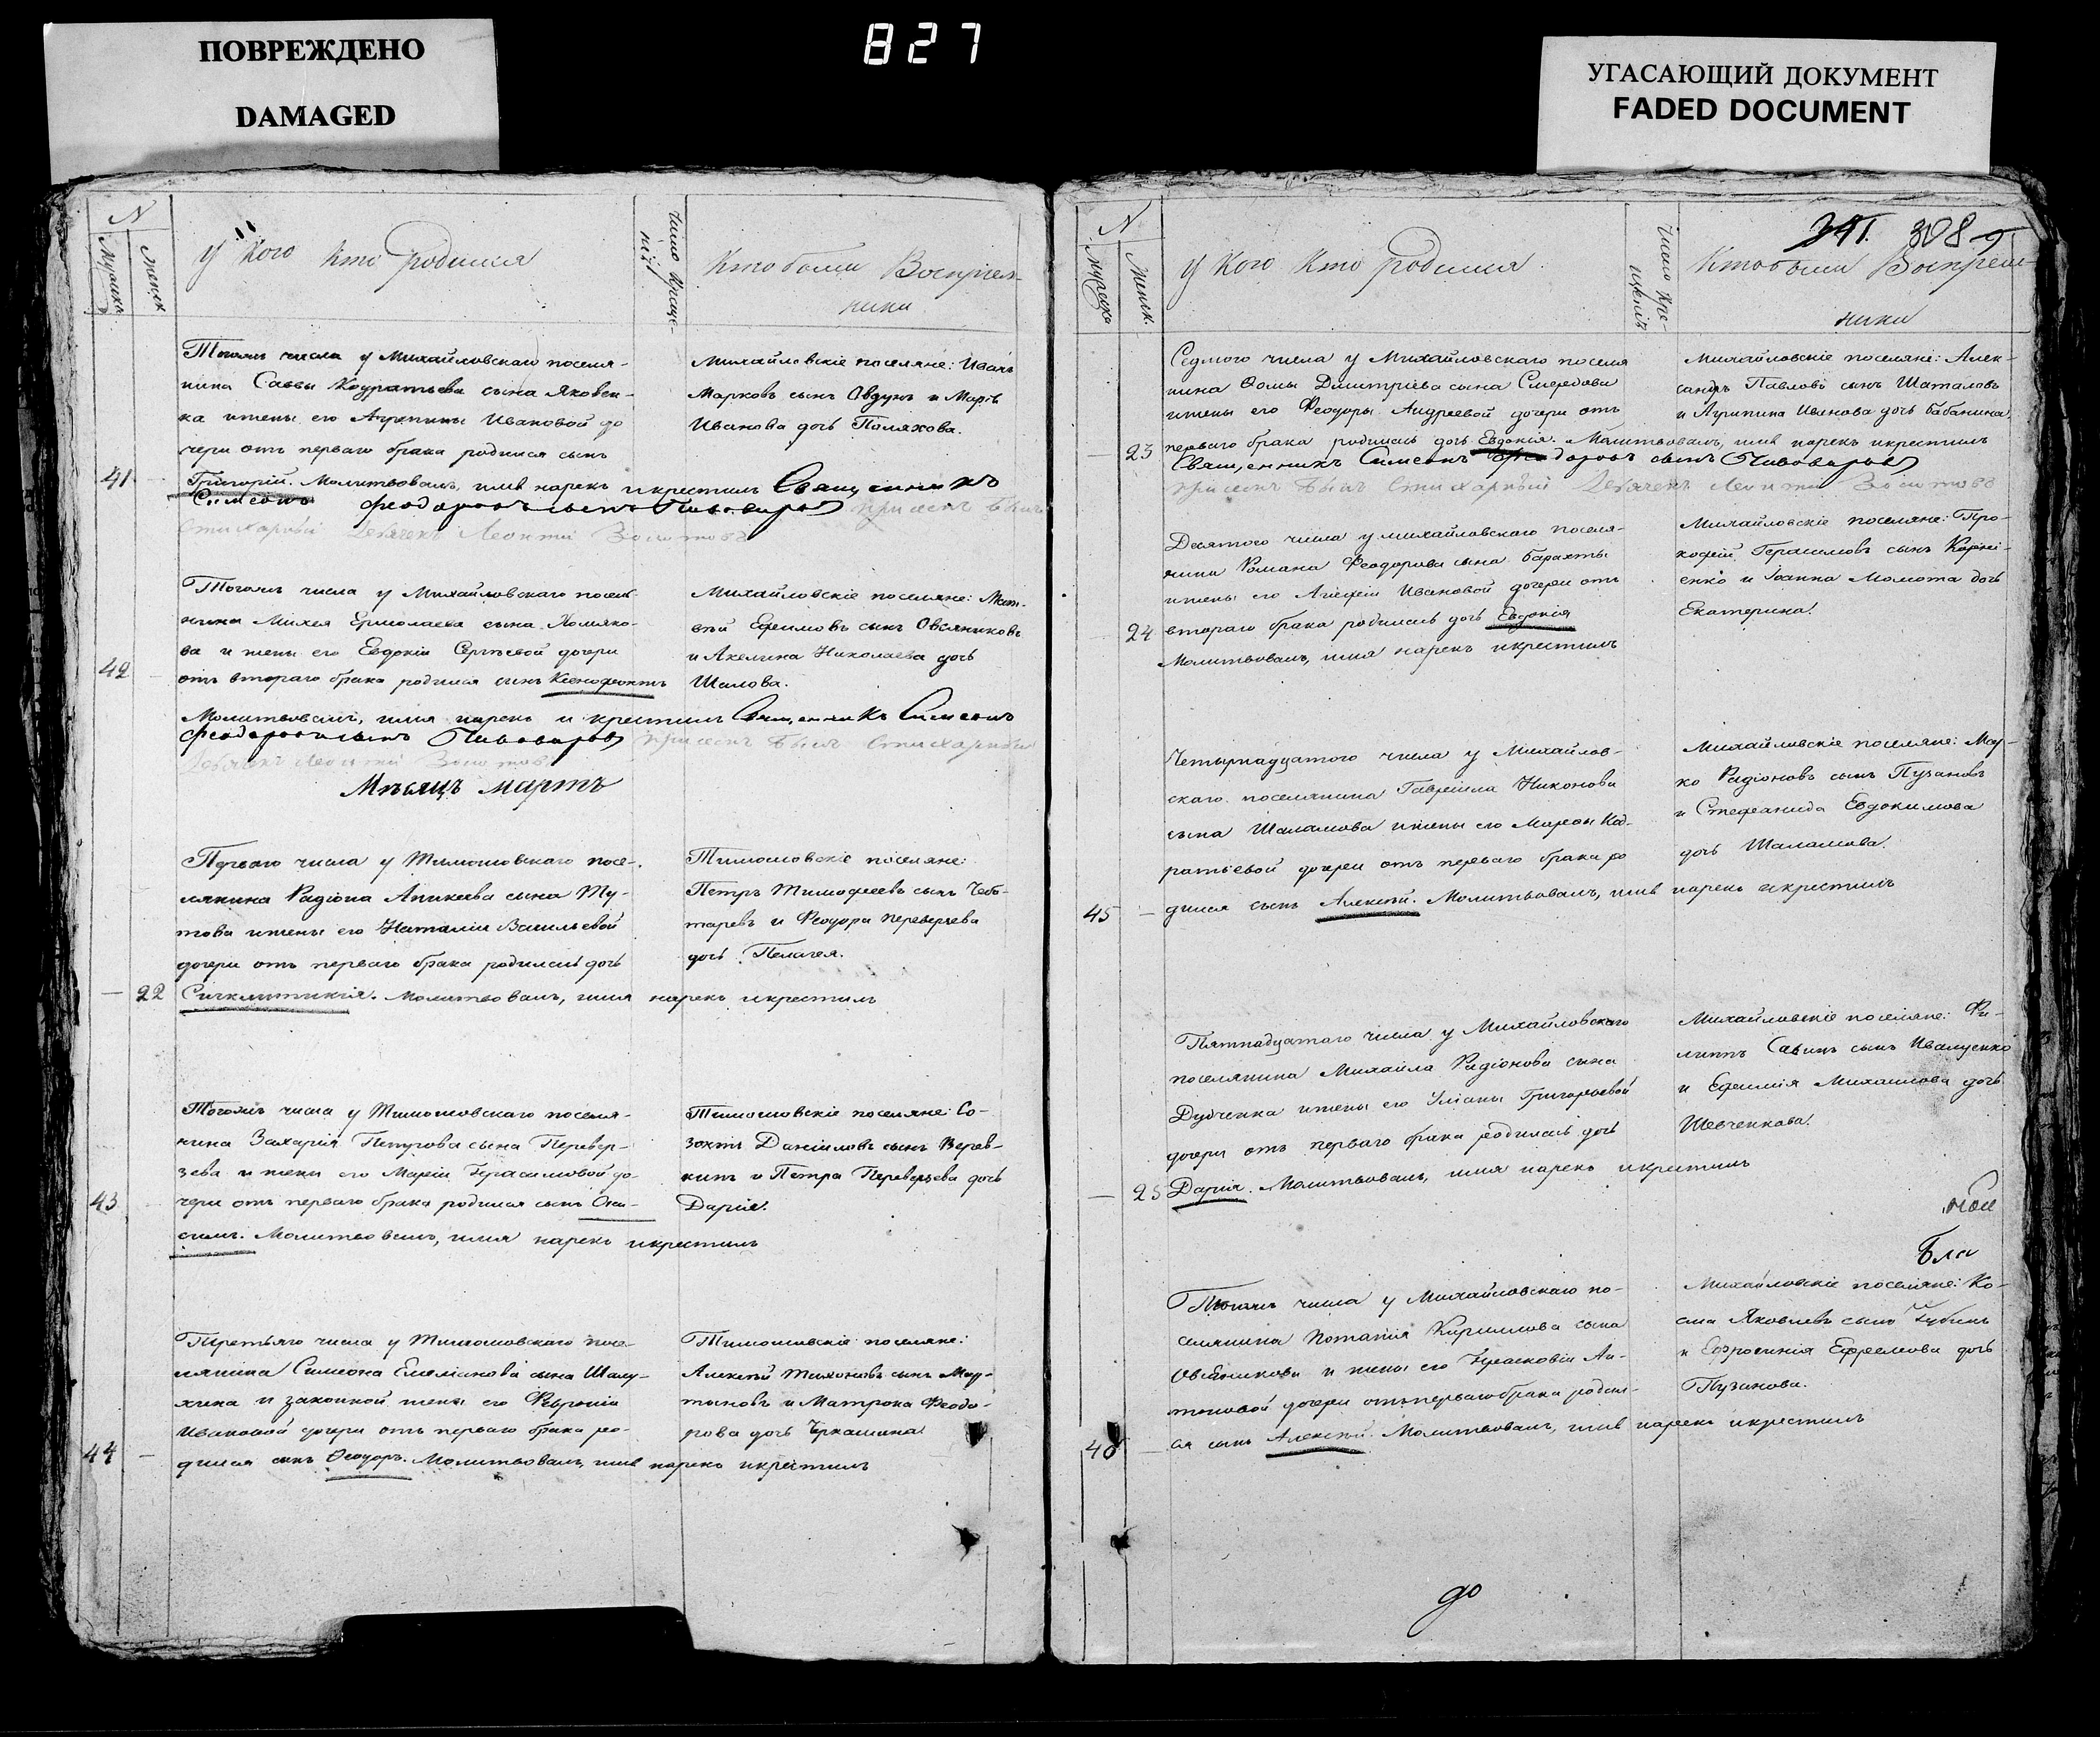 ПОВРЕЖДЕНО
DAMAGED
827
УГАСАЮЩИЙ ДОКУМЕНТ
FADED DOCUMENT
N
Мужеска
Женск
У кого кто родился
Число Креще-
ній
Кто были Воспріем-
ники
Тогожъ числа у Михайловскаго поселя-
нина Саввы Кодратьева сына Яковен-
ка ижены его Агрепины Ивановой до
чери отъ перваго брака родился сынъ
41
Григорій. Молитвовалъ, имя нарекъ икрестилъ Священникъ
Симеонъ Феодоровъ сынъ Пивоваровъ при семъ былъ
Стихарный Дьячекъ Леонтій
Михайловскіе поселяне: Иванъ
Марковъ сынъ Овдунъ и Марѳа
Иванова дочь Поляхова.
Тогожъ числа у Михайловскаго поселя
нина Михея Ермолаева сына Хомяко-
ва и жены его Евдокіи Сергѣевой дочери
42
отъ втораго брака родился сынъ Ксенофонтъ
Молитвовалъ, имя нарекъ и крестилъ Священникъ Симеонъ
Феодоровъ сынъ Пивоваровъ при семъ былъ Стихарный
Дьячекъ Леонтій
Михайловскіе поселяне: Мат-
вѣй Ефимовъ сынъ Овсяниковъ
и Акелина Николаева дочь
Шалова.
Мѣсяцъ мартъ
Перваго числа у Тимошовскаго посе-
лянина Радіона Аникеева сына Ту-
това ижены его Наталіи Васильевой
дочери отъ перваго брака родилась дочь
22
Сигклитикія. Молитвовалъ, имя нарекъ икрестилъ
Тимошовскіе поселяне:
Петръ Тимофеевъ сынъ Чебо-
таревъ и Феодора Переверзева
дочь Пелагея.
Тогожъ числа у Тимошовскаго поселя-
нина Захарія Петрова сына Перевер-
зева и жены его Маріи Герасимовой до-
43
чери отъ перваго брака родился сынъ Они-
симъ. Молитвовалъ, имя нарекъ икрестилъ
Тимошовскіе поселяне: Со-
зонтъ Даніиловъ сынъ Верев-
кинъ и Петра Переверзева дочь
Дарія.
Третьяго числа у Тимошовскаго посе-
лянина Симеона Емелианова сына Шалу-
хина и законной жены его Февроніи
Ивановой дочери отъ перваго брака ро-
44
дился сынъ Ѳеодоръ. Молитвовалъ, имя нарекъ икрестилъ
Тимошовскіе поселяне:
Алексѣй Тихоновъ сынъ Мар-
тыновъ и Матрона Феодо-
рова дочь Черкашина
N
Мужеска
Женск.
у кого кто родился
Число Кре-
щенія
308
Кто были Воспріем
ники
Седмого числа у Михайловскаго поселя
нина Ѳомы Дмитріева сына Смередова
ижены его Феодоры Андреевой дочери отъ
23
перваго брака родилась дочь Евдокія. Молитвовалъ, имя нарекъ икрестилъ
Священникъ Симеонъ Феодоровъ сынъ Пивоваровъ
при семъ былъ Стихарный Дьячекъ Леонтій
Михайловскіе поселяне: Алек-
сандръ Павловъ сынъ Шаталовъ
и Агрипина Иванова дочь Бабанина.
Десятого числа у михайловскаго поселя-
нина Романа Феодорова сына Барахты
ижены его Агафіи Ивановой дочери отъ
24
втораго брака родилась дочь Евдокія
Молитвовалъ, имя нарекъ икрестилъ
Михайловскіе поселяне: Про-
кофій Герасимовъ сынъ Корні-
енко и Іоанна Мамота дочь
Екатерина.
Четырнадцатого числа у Михайлов-
скаго поселянина Гавріила Никонова
сына Шаламова ижены его Марѳы Код-
ратьевой дочери отъ перваго брака ро
45
дился сынъ Алексѣй. Молитвовалъ, имя нарекъ икрестилъ
Михайловскіе поселяне: Мар-
ко Радіоновъ сынъ Пузановъ
и Стефанида Евдокимова
дочь Шаламова.
Пятнадцатаго числа у Михайловскаго
поселянина Михаила Радіонова сына
Дубченка ижены его Уліаны Григорьевой
дочери отъ перваго брака родилась дочь
25
Дарія. Молитвовалъ, имя нарекъ икрестилъ
Михайловскіе поселяне: Фи-
липъ Савинъ сынъ Иващенко
и Ефимія Михаилова дочь
Шевченкова.
Бла
Тогожъ числа у Михайловскаго по-
селянина Потапія Кирилова сына
Овсяникова и жены его Парасковіи Ан-
тоновой дочери отъперваго брака родил-
46
ся сынъ Алексѣй. Молитвовалъ, имя нарекъ икрестилъ
Михайловскіе поселяне: Ко-
сма Яковлевъ сынъ Губинъ
и Ефросинія Ефремова дочь
Пузанова.
до